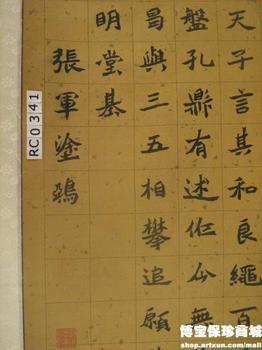 天子言其私長繩百
盤孔鼎有述作今無
昌與三五相攀追願
明堂基
張軍塗鴉
RC0341
博宝保珍商城
shop.artxun.com/mall